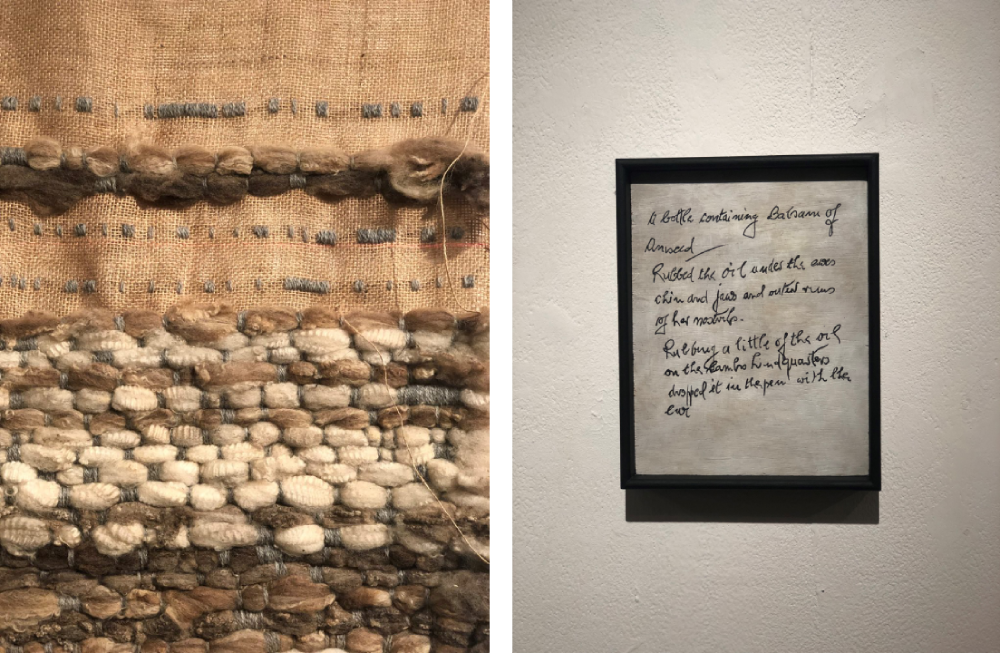 A bottle containing Balsam of
Aniseed
Rubbed the oil under the ewes
chin and jaws and outer rims
of her nostrils.
Rubbing a little of the oil
on the lambs hindquarters
dropped it in the pen with the
ewe